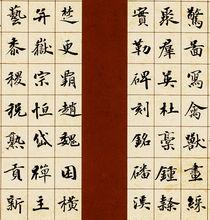 驚圖寫禽獸畫綵
聚群英杜稾鍾隸
實勒碑刻銘磻溪
楚更霸趙魏困橫
并嶽宗恒岱禪主
藝黍稷稅熟貢新